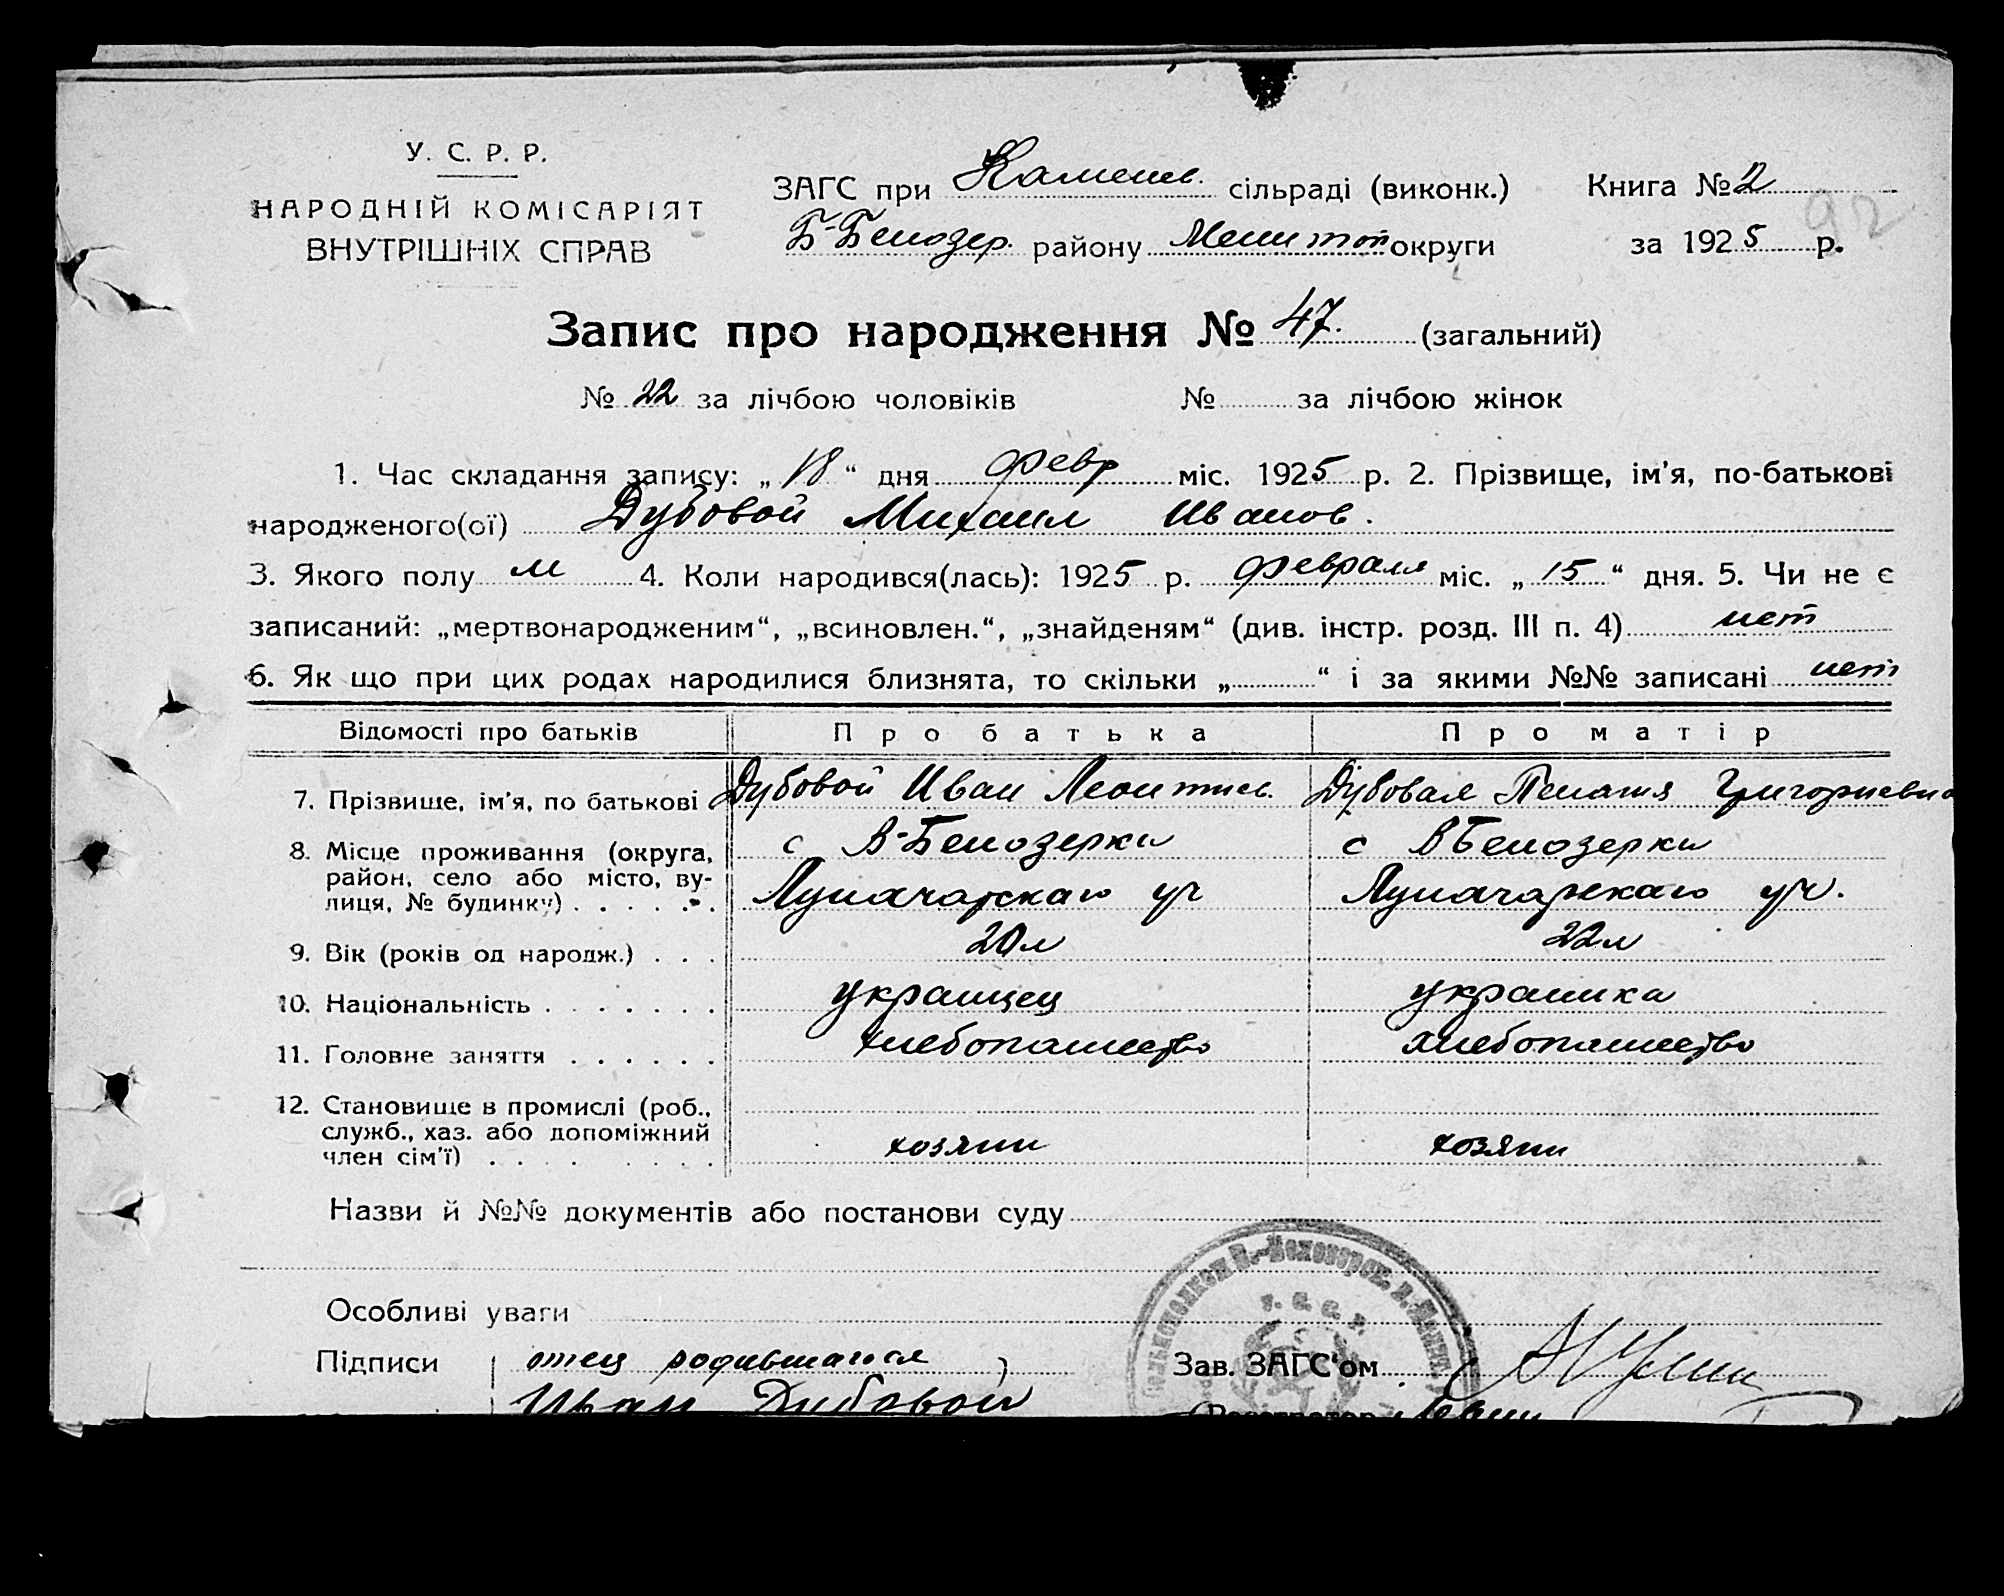 У. С. Р. Р.
НАРОДНІЙ КОМІСАРІЯТ
ВНУТРІШНІХ СПРАВ
ЗАГС при Каменев. сільраді (виконк.) Книга № 2
92
Б-Белозер. району Мелитоп округи за 1925 р.
Запис про народження № 47. (загальний)
№ 22 за лічбою чоловіків № за лічбою жінок
1. Час складання запису: „18“ дня февр міс. 1925 р. 2. Прізвище, ім'я, по-батькові
народженого(ої) Дубовой Михаил Иванов.
3. Якого полу м 4. Коли народився(лась): 1925 р. февраля міс. „15“ дня. 5. Чи не є
записаний: „мертвонародженим“, „всиновлен.“, „знайденям“ (див. інстр. розд. III п. 4) нет
6. Як що при цих родах народилися близнята, то скільки „ “ і за якими №№ записані нет
Відомості про батьків Про батька Про матір
7. Прізвище, ім'я, по батькові Дубовой Иван Леонтиев. Дубовая Пелагия Григориевна
8. Місце проживання (округа, с В-Белозерки с В Белозерки
район, село або місто, ву-
лиця, № будинку) Луначарскаго уч Луначарскаго уч.
9. Вік (років од народж.) 20 л 22 л
10. Національність украинец украинка
11. Головне заняття хлебопашество хлебопашество
12. Становище в промислі (роб.,
служб., хаз. або допоміжний
член сім'ї) хозяин хозяин
Назви й №№ документів або постанови суду
Особливі уваги
У. С. С. Р.
Підписи отец родившагося Зав. ЗАГС'ом
Иван Дубовой (Реєстратор)